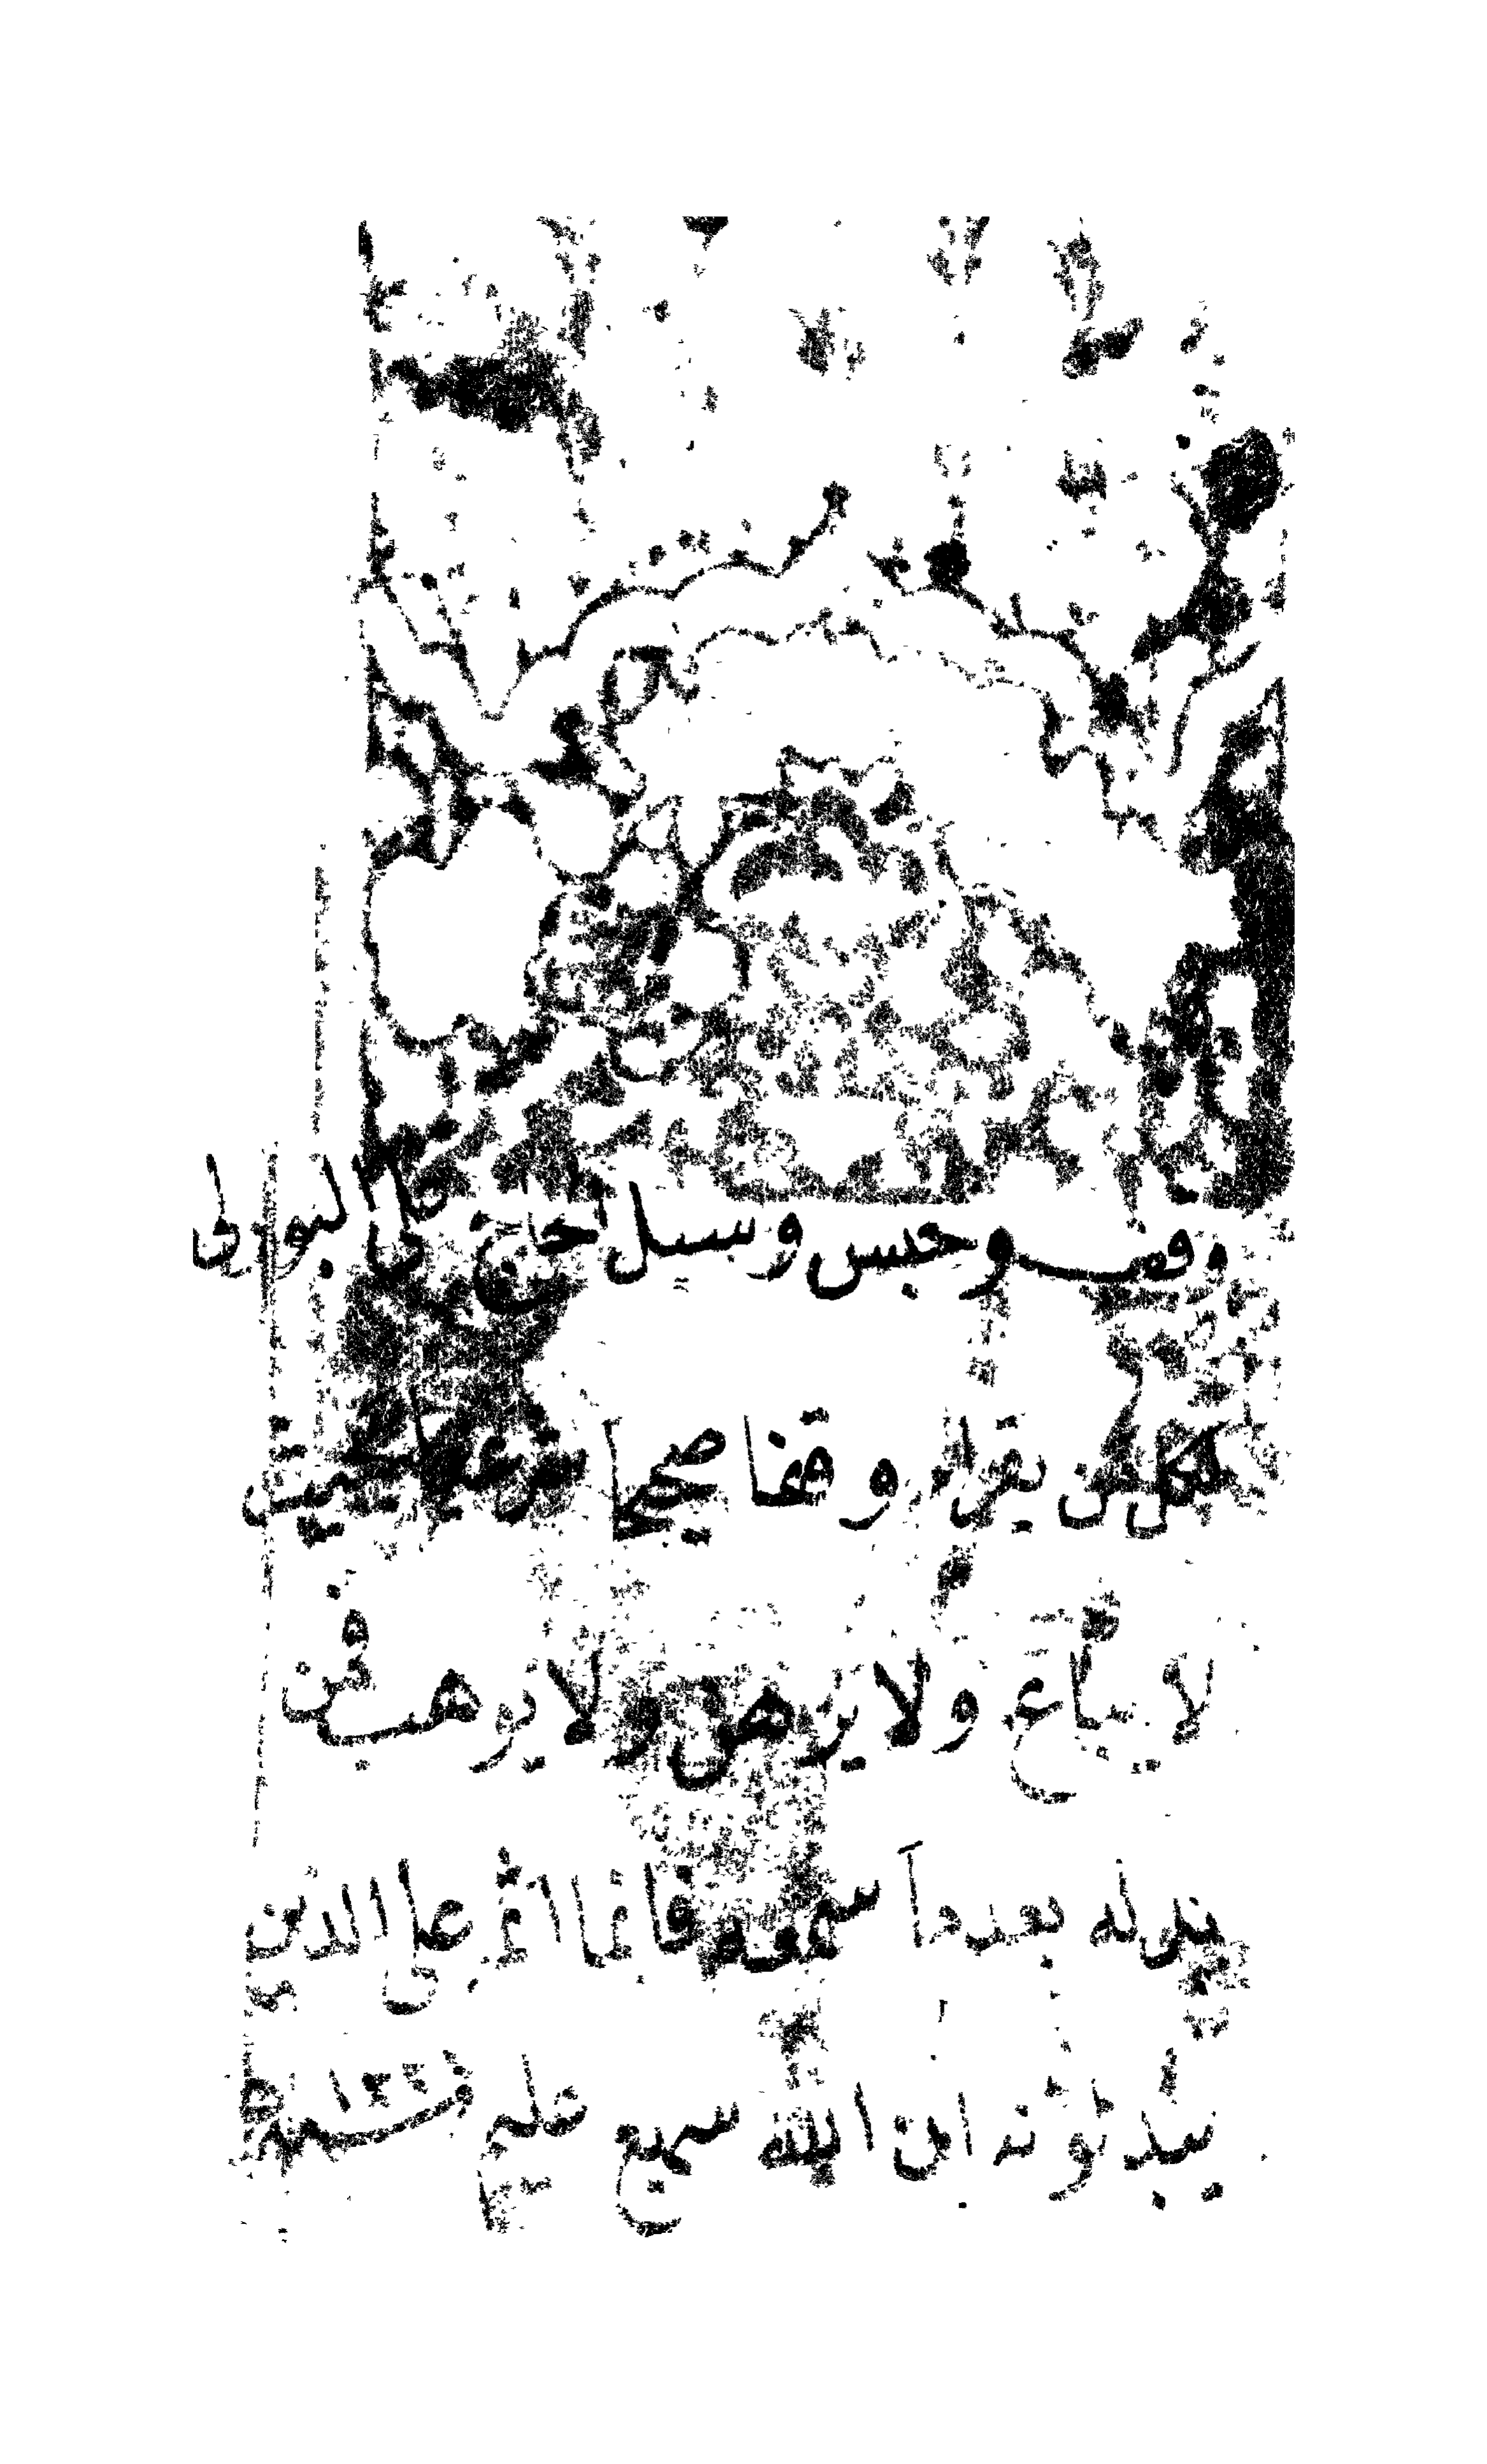 وقف وحبس وسبل الحاج علي
لكل من يقرا وقفا صحيحا شرعيا بحيث
لا يباع ولا يرهن ولا يوهب فمن
بدله بعد ما سمعه فانما اثمه على الذين
يبدلونه ان الله سميع عليم